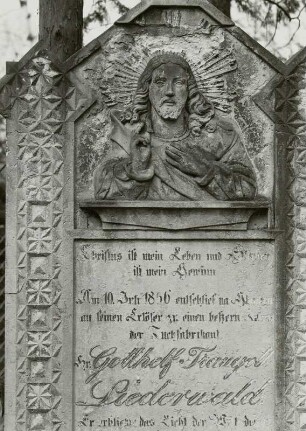 Christus ist mein Leben und
ist mein Gewinn
Am 10. 1856 entschlief
an seinen Erlöser zu einen bessern
der Tuchfabrikant
Gotthelf Traugott
Liederwald
Er erblickte das Licht der Welt